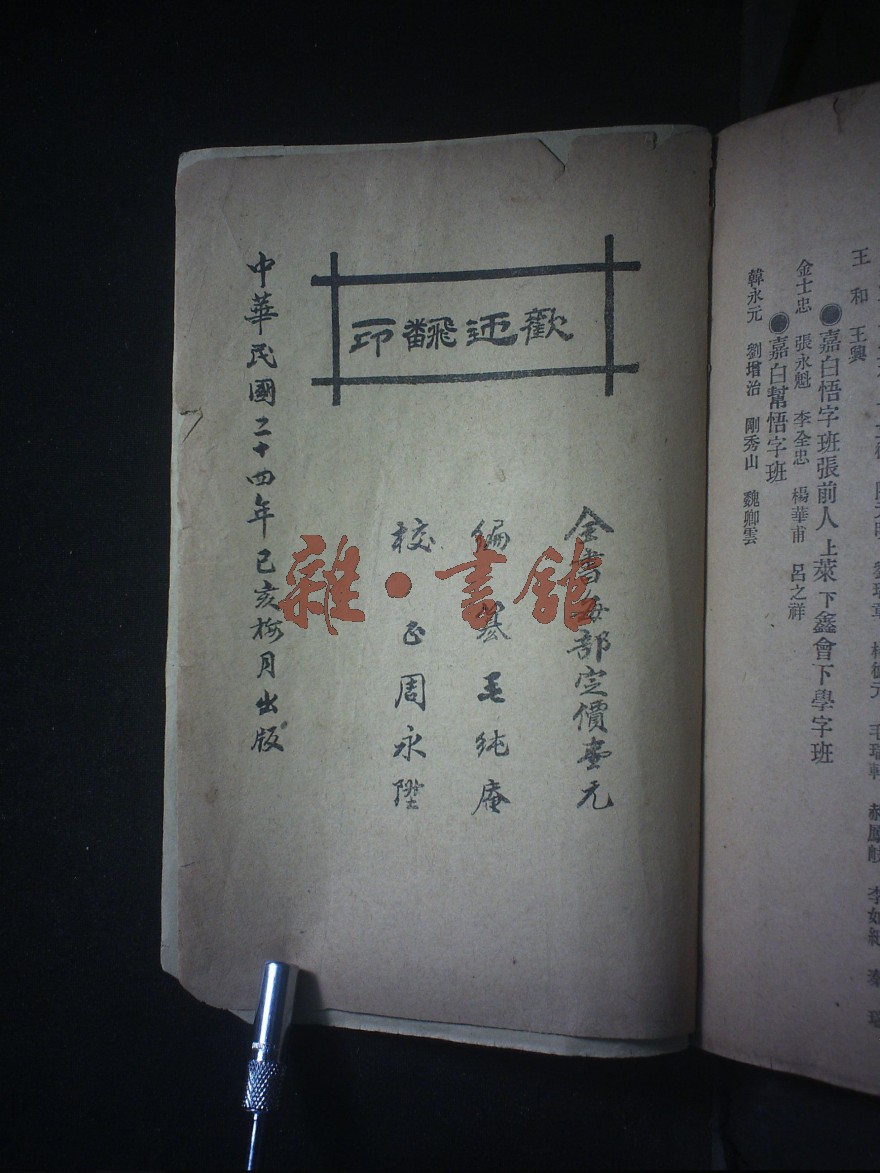 王　和　王興
●嘉白悟字班張前人　上萊　下鑫會下學字班
金士忠　張永魁　李全忠　楊華甫　呂之祥
●嘉白幫悟字班
韓永元　劉增治　剛秀山　魏卿雲
歡迎翻印
全書每部定價壹元
編纂毛純庵
校正周永陞
中華民國二十四年己亥梅月出版
雜·書館